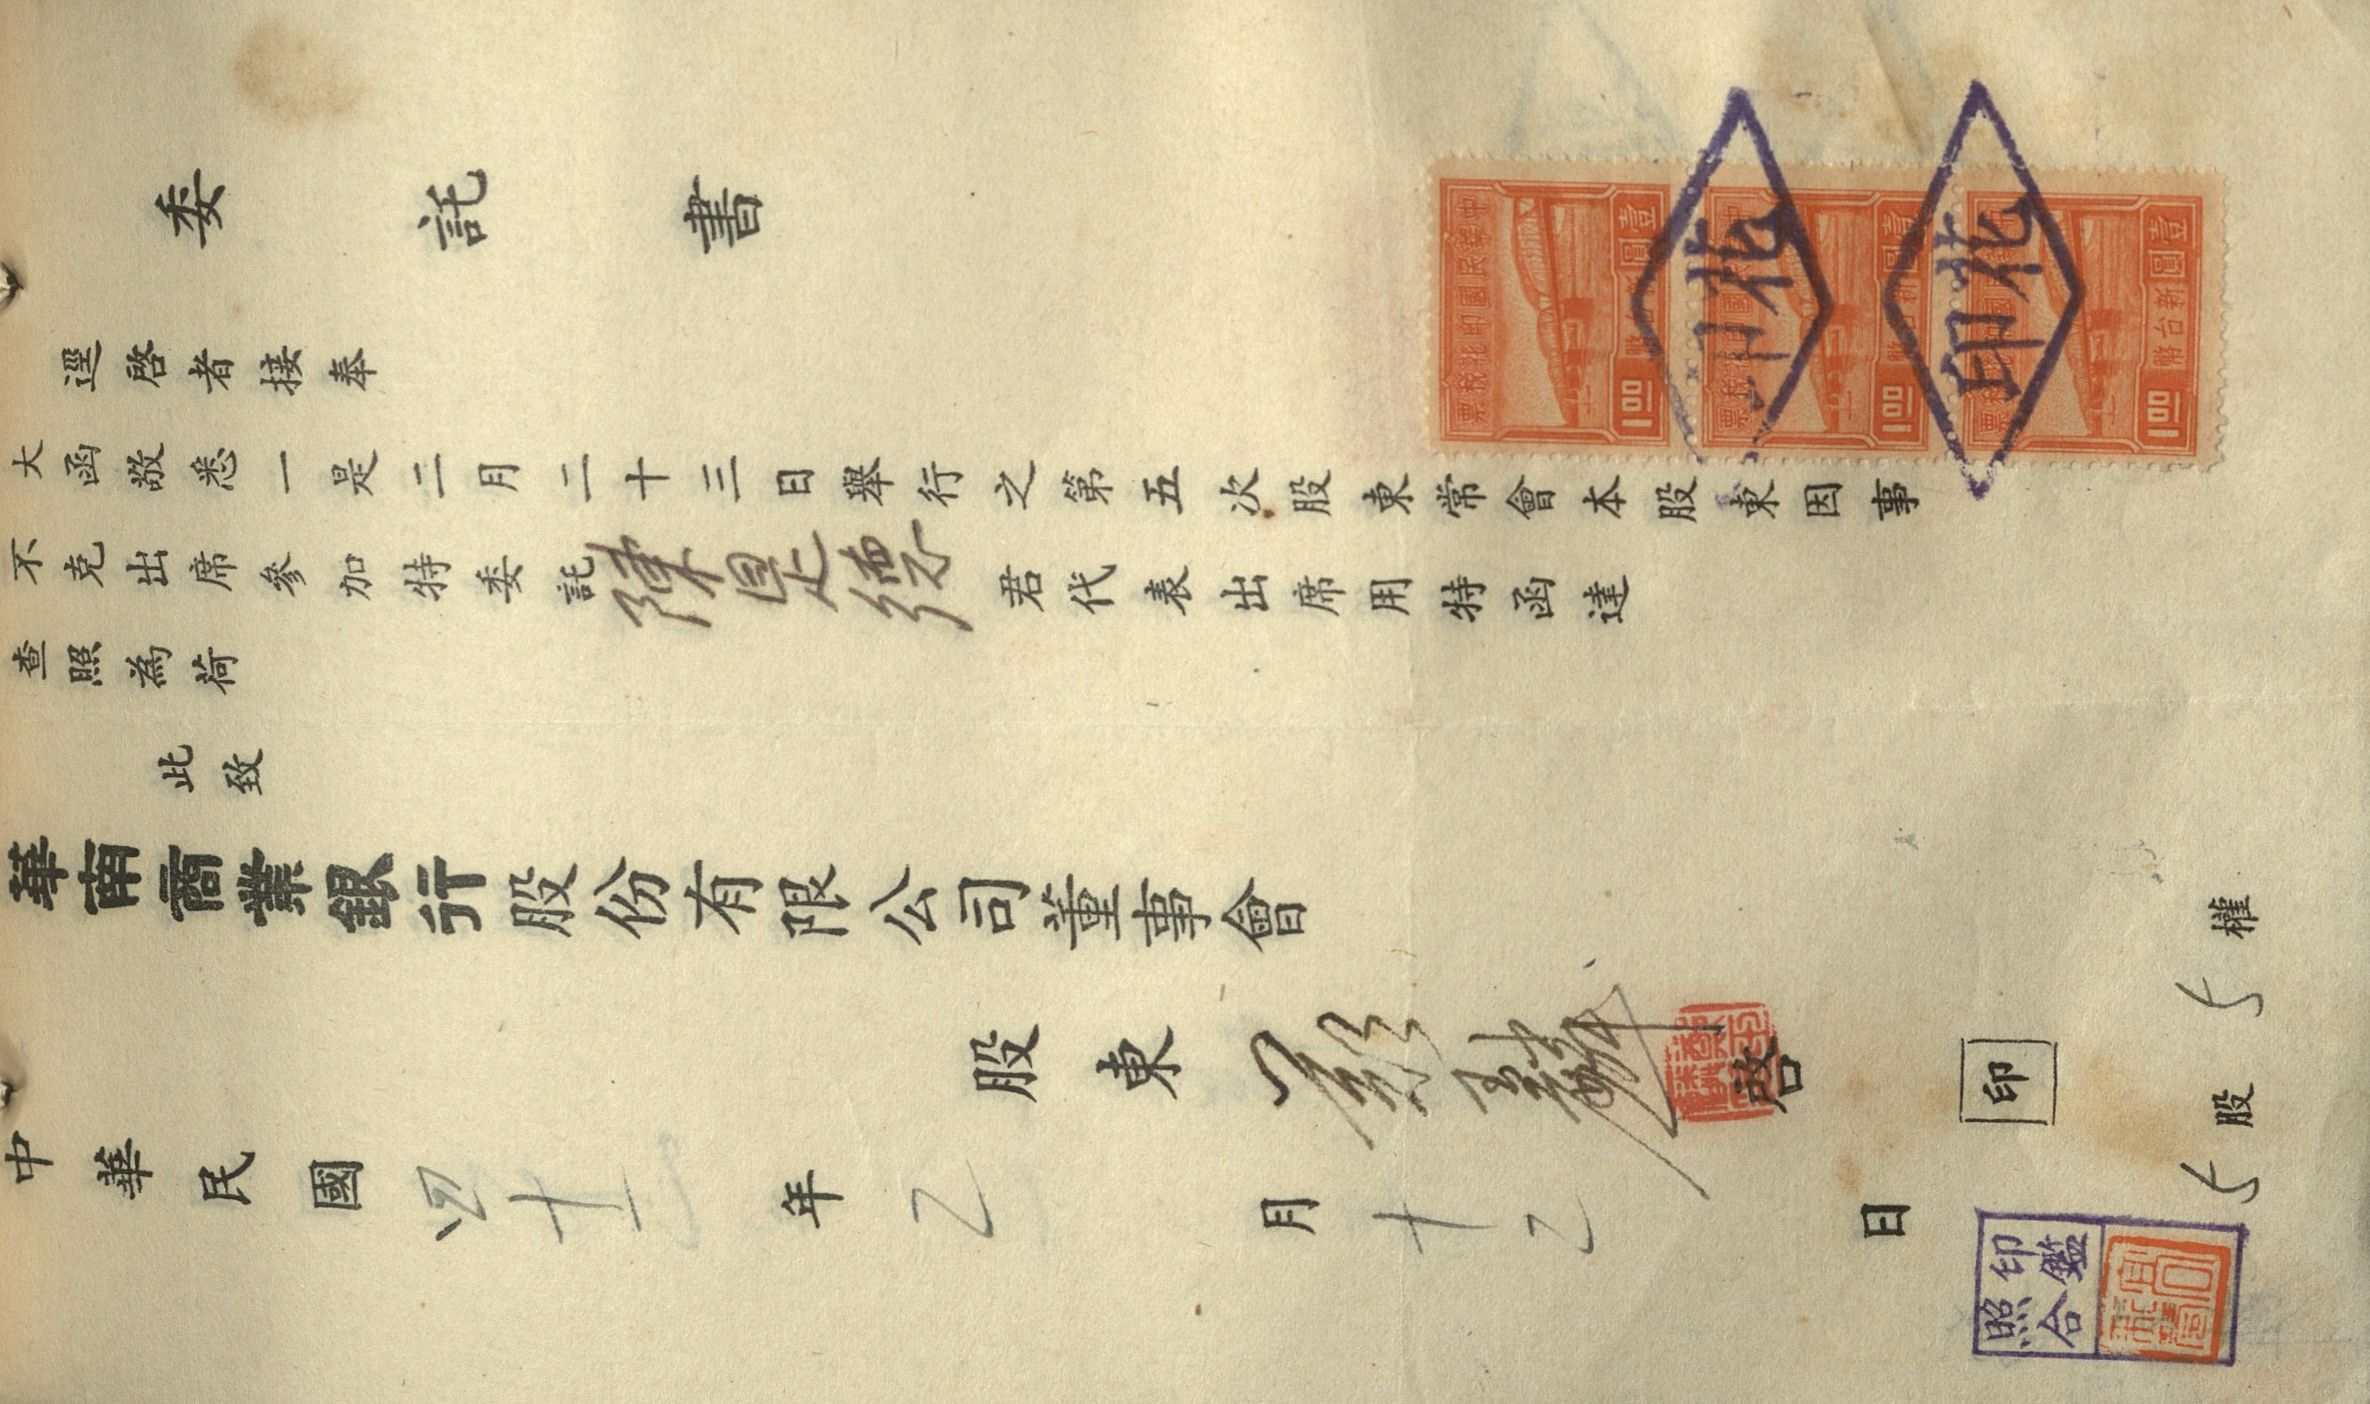 委託書
逕啓者接奉
大函敬悉一是二月二十三日舉行之第五次股東常會本股東因事
不克出席參加特委託陳是德君代表出席用特函達
查照為荷
此致
華南商業銀行股份有限公司董事會
股東 啓 印
中華民國四十二年2月十2日
5股5權
中華民國印花稅票
壹圓新台幣
1.00
中華民國印花稅票
壹圓新台幣
1.00
中華民國印花稅票
壹圓新台幣
1.00
印花
印花
印鑑
照合